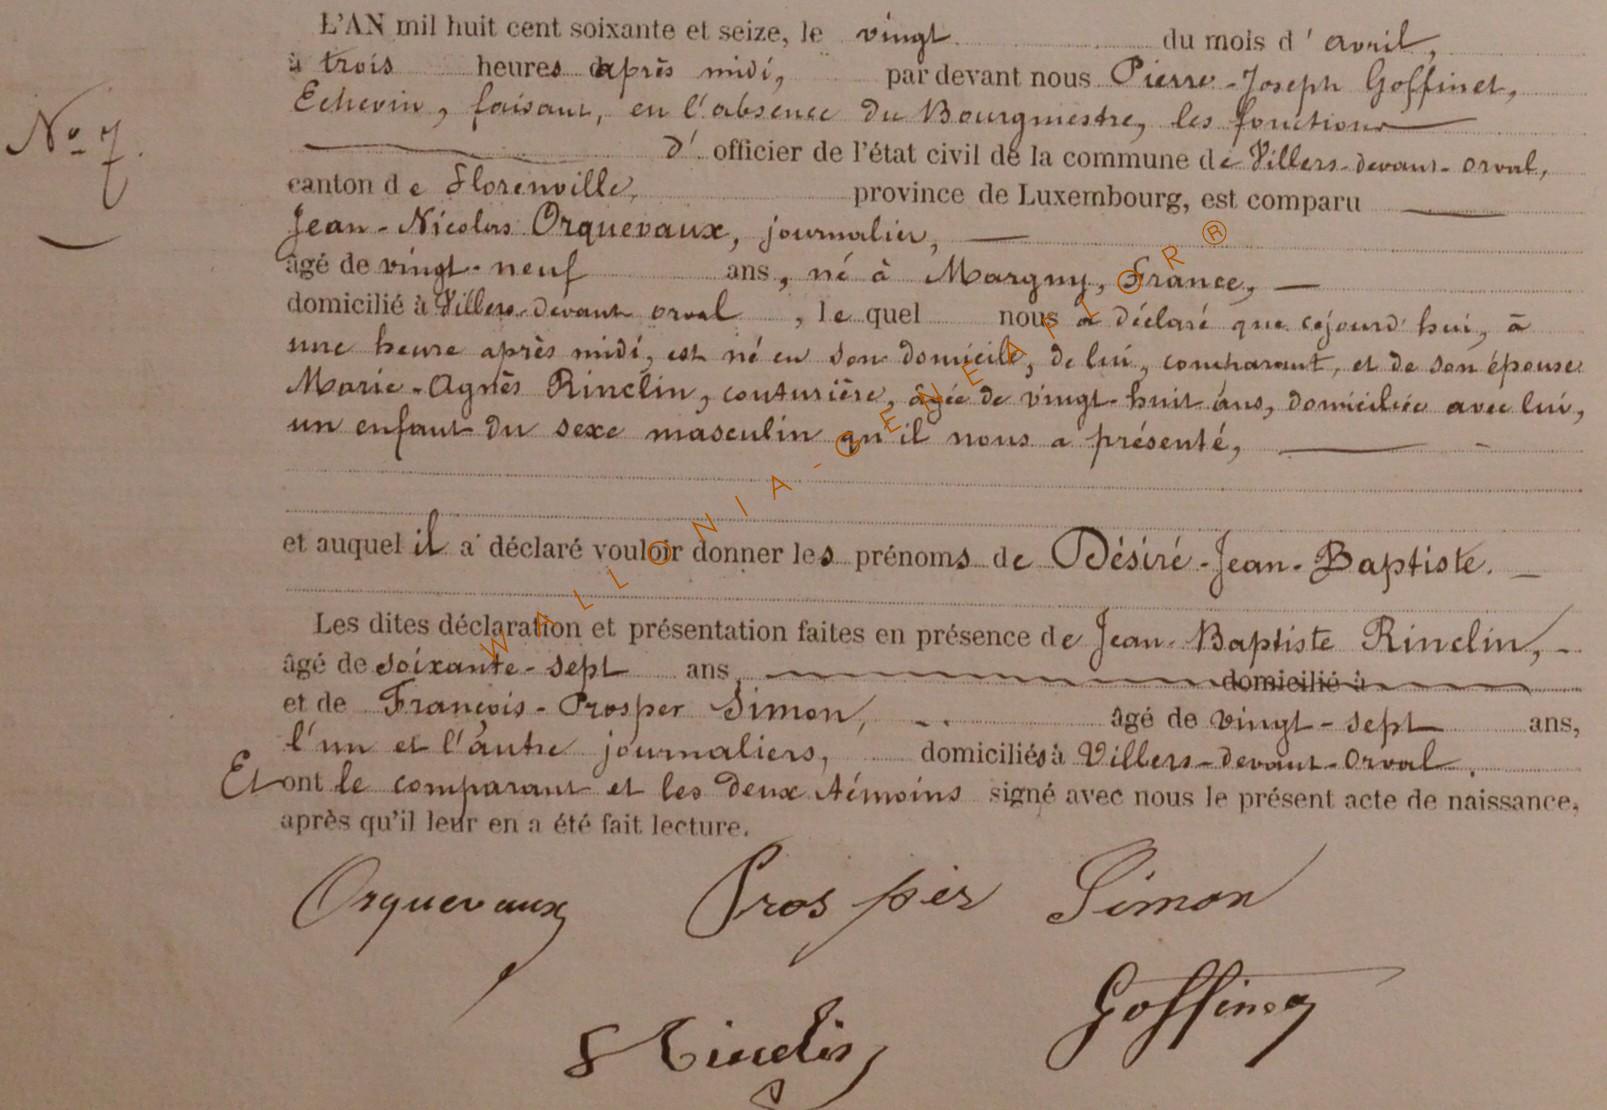 L'AN mil huit cent soixante et seize, le vingt du mois d' avril,
à trois heures après midi, par devant nous Pierre-Joseph Goffinet,
Echevin, faisant, en l'absence du Bourgmestre, les fonctions
N° 7.
d' officier de l'état civil de la commune de Villers-devant-orval,
canton de Florenville, province de Luxembourg, est comparu
Jean-Nicolas Orquevaux, journalier,
âgé de vingt-neuf ans, né à Margny, France,
domicilié à Villers-devant orval, lequel nous a déclaré que cejourd'hui, à
une heure après midi, est né en son domicile, de lui, comparant, et de son épouse
Marie-Agnès Rinclin, couturière, âgée de vingt-huit ans, domiciliée avec lui,
un enfant du sexe masculin qu'il nous a présenté,
et auquel il a déclaré vouloir donner les prénoms de Désiré-Jean-Baptiste.
Les dites déclaration et présentation faites en présence de Jean-Baptiste Rinclin,
âgé de soixante-sept ans domicilié à
et de François-Prosper Simon, âgé de vingt-sept ans,
l'un et l'autre journaliers, domiciliés à Villers-devant-Orval.
Et ont le comparant et les deux témoins signé avec nous le présent acte de naissance,
après qu'il leur en a été fait lecture.
Orquevaux Prosper Simon
Goffinet
WALLONIA-GENEAPIOR®